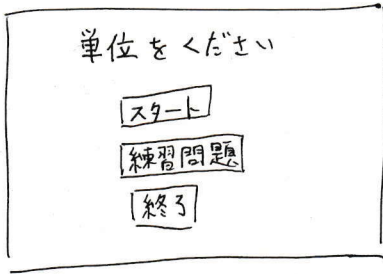 単位をください
スタート
練習問題
終了